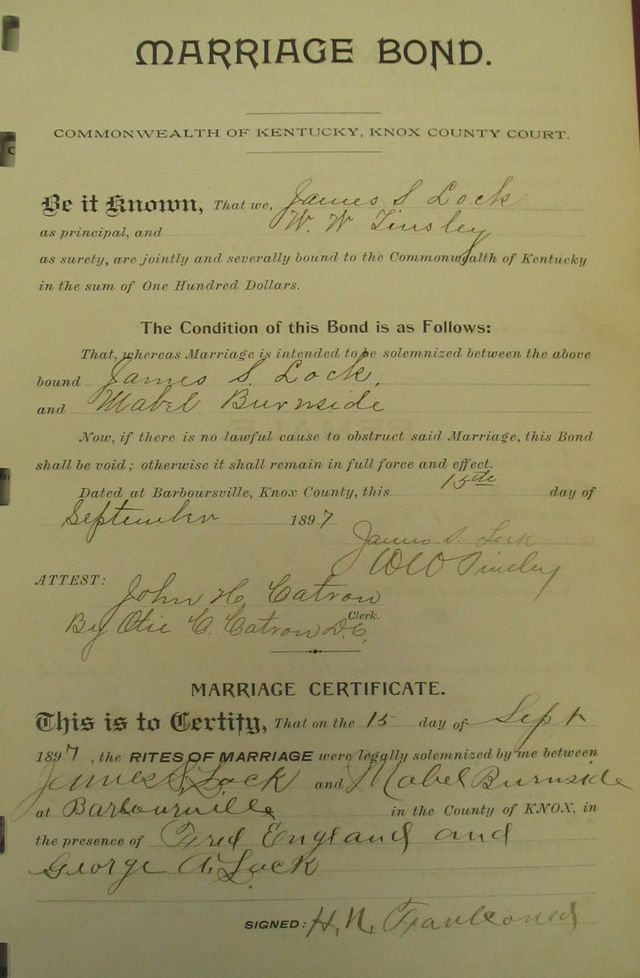 MARRIAGE BOND.
COMMONWEALTH OF KENTUCKY, KNOX COUNTY COURT.
Be it Known, That we, James S Lock
as principal, and W. W Tinsley
as surety, are jointly and severally bound to the Commonwealth of Kentucky
in the sum of One Hundred Dollars.
The Condition of this Bond is as Follows:
That, whereas Marriage is intended to be solemnized between the above
bound James S. Lock,
and Mabel Burnside
Now, if there is no lawful cause to obstruct said Marriage, this Bond
shall be void; otherwise it shall remain in full force and effect.
Dated at Barboursville, Knox County, this 15th day of
September 1897
James S. Lock
W W Tinsley
ATTEST:
John H Catron
Clerk.
By Otie C. Catron D.C.
MARRIAGE CERTIFICATE.
This is to Certify, That on the 15 day of Sept
1897, the RITES OF MARRIAGE were legally solemnized by me between
James S. Lock and Mabel Burnside
at Barbourville in the County of KNOX, in
the presence of Fred England and
George A. Lock
SIGNED: H. N.